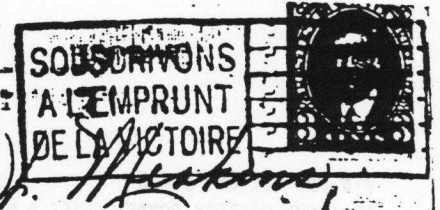 SOUSCRIVONS
A L'EMPRUNT
DE LA VICTOIRE